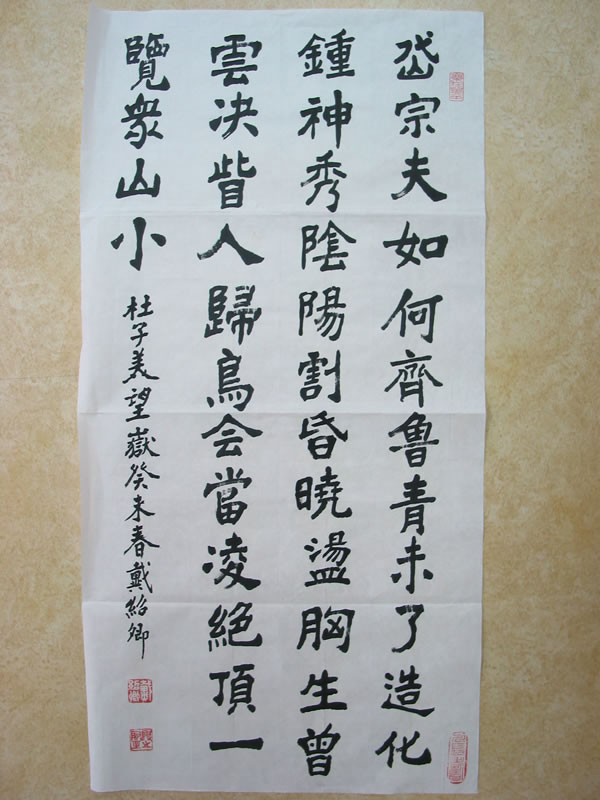 岱宗夫如何齊魯青未了造化
鍾神秀陰陽割昏曉盪胸生曾
雲决眥入歸鳥会當凌絕頂一
覽衆山小
杜子美望嶽癸未春戴紹卿